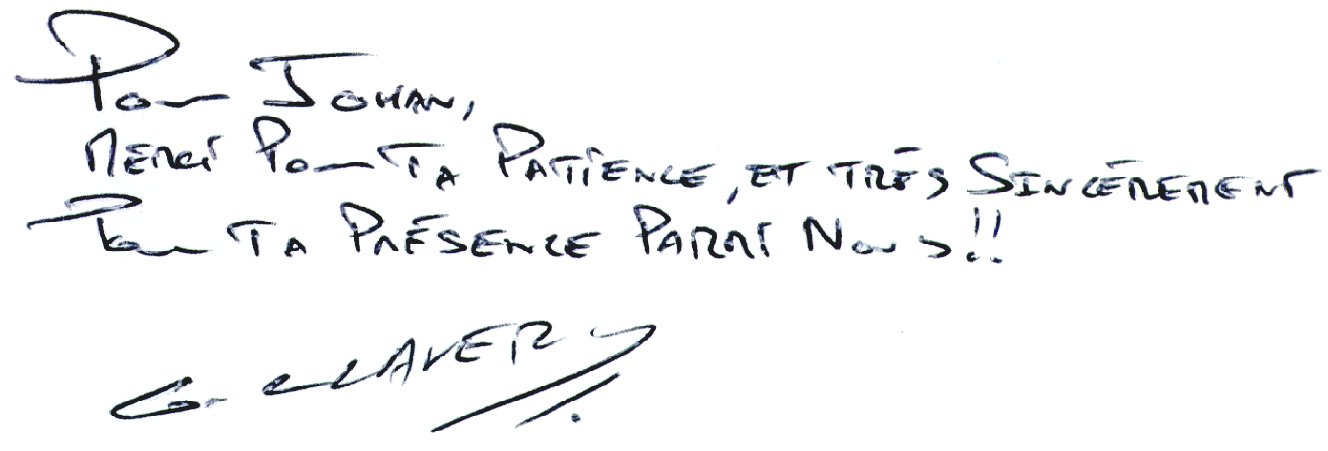 Pour Johan,
Merci Pour Ta Patience, et très Sincèrement
Pour Ta Présence Parmi Nous!!